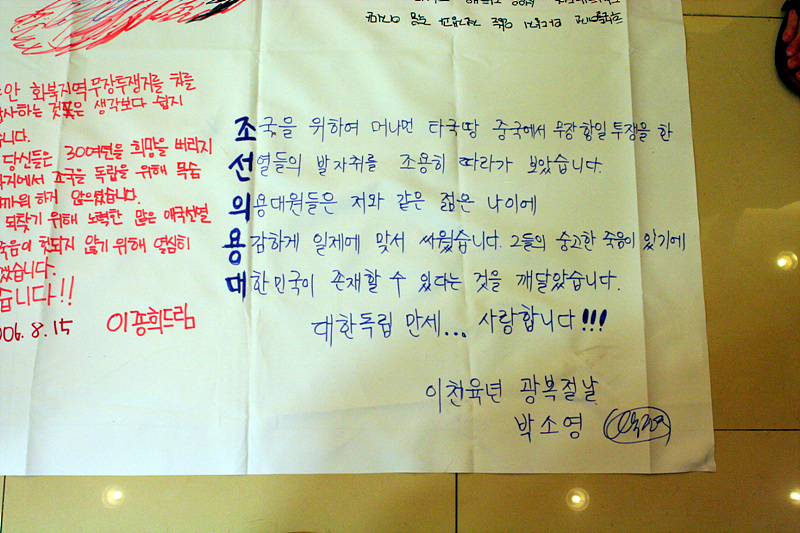 안 화북지역 무장투쟁지를 처를
사하는 것은 생각보다 쉽지
습니다.
당신들은 30여년을 희망을 버리지
지에서 조국을 독립을 위해 목숨
까워 하지 않으셨습니다.
되찾기 위해 노력한 많은 애국선열
죽음이 헛되지 않기 위해 열심히
겠습니다.
습니다!!
006. 8. 15 이종희드림
조국을 위하여 머나먼 타국땅 중국에서 무장 항일 투쟁을 한
선열들의 발자취를 조용히 따라가 보았습니다.
의용대원들은 저와 같은 젊은 나이에
용감하게 일제에 맞서 싸웠습니다. 그들의 숭고한 죽음이 있기에
대한민국이 존재할 수 있다는 것을 깨달았습니다.
대한독립 만세... 사랑합니다!!!
이천육년 광복절날
박소영